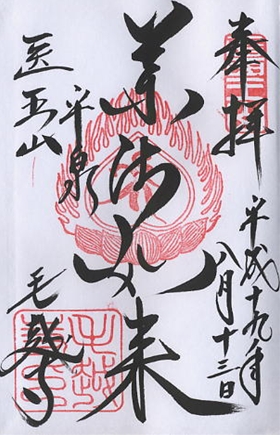 奉拝
平成十九年
八月十三日
薬師如来
平泉
医王山
毛越寺